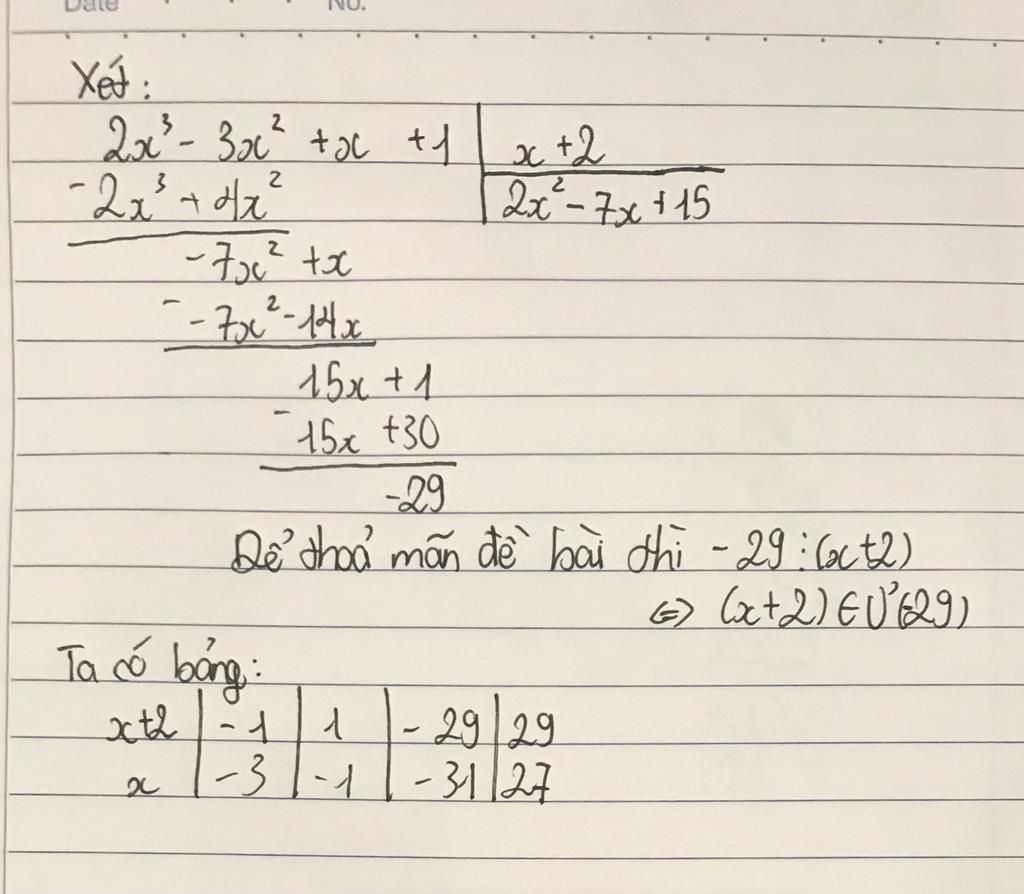 Date No.
Xét:
2x³ - 3x² + x + 1 | x + 2
- 2x³ + 4x² | 2x² - 7x + 15
- 7x² + x
- - 7x² - 14x
15x + 1
- 15x + 30
-29
Để thoả mãn đề bài thì - 29 ⋮ (x+2)
<=> (x+2) ∈ Ư(-29)
Ta có bảng:
x+2 | -1 | 1 | - 29 | 29
x | -3 | -1 | -31 | 27